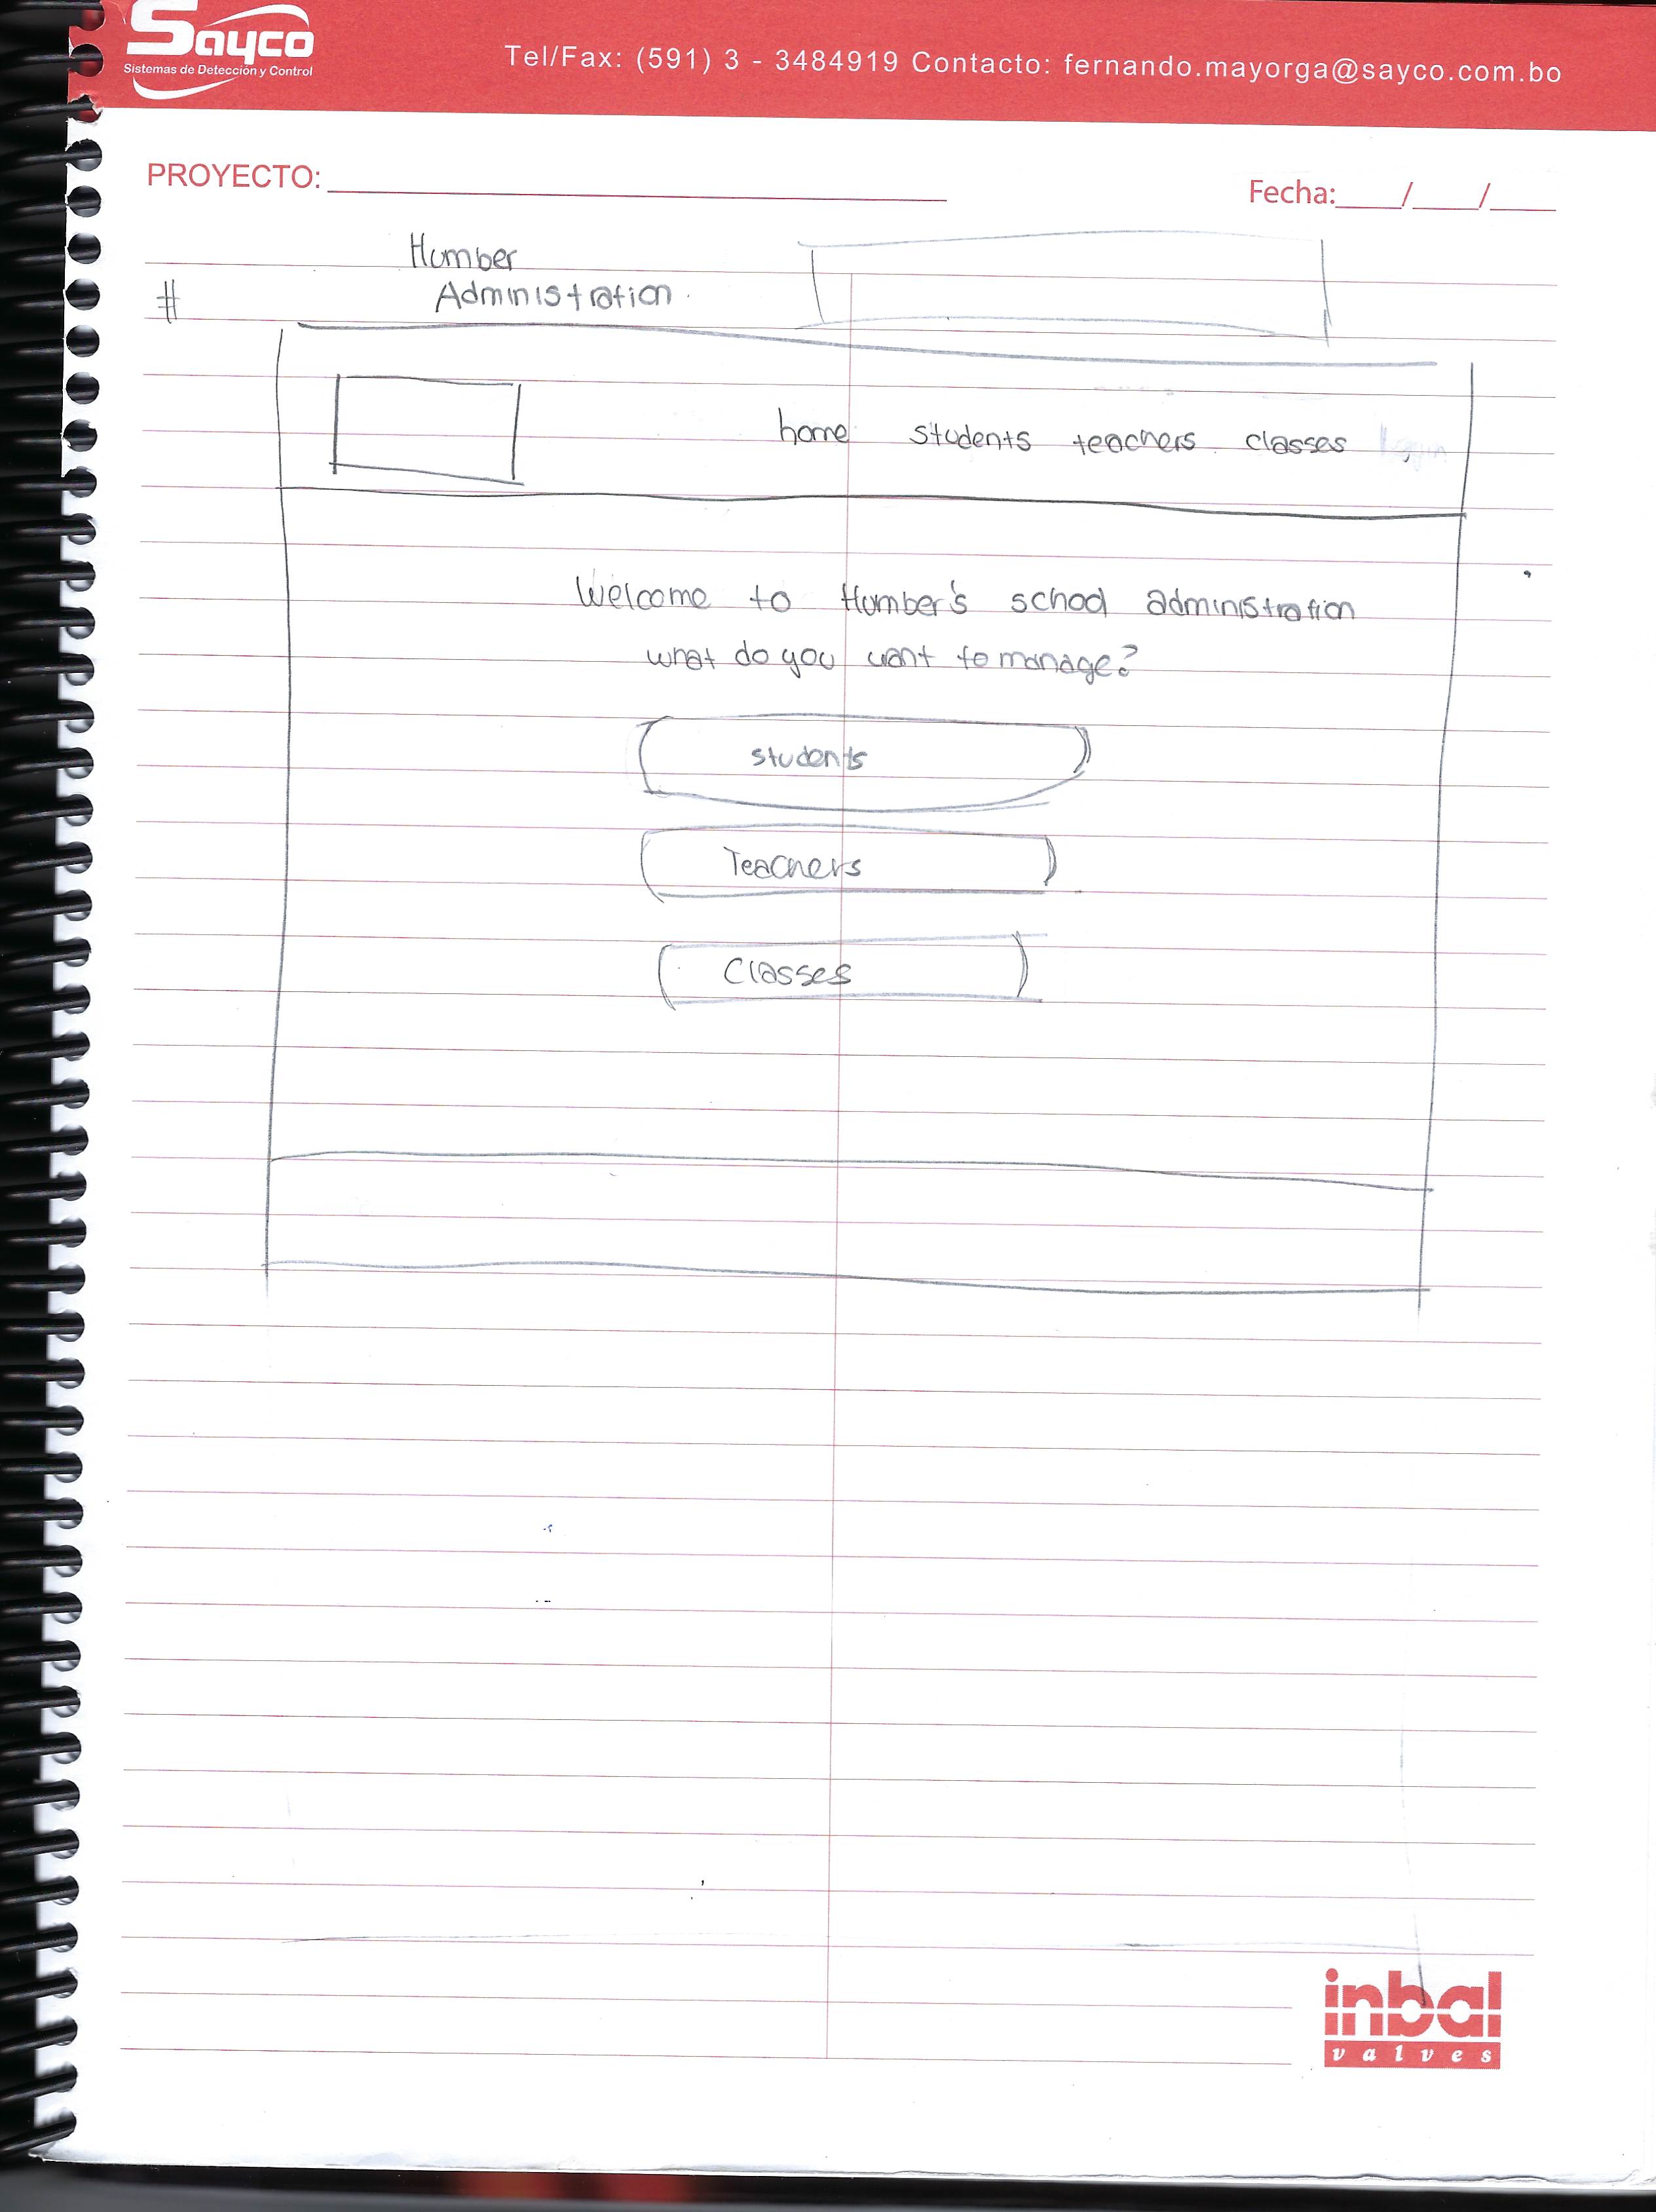 Sayco
Sistemas de Detección y Control
Tel/Fax: (591) 3 - 3484919 Contacto: fernando.mayorga@sayco.com.bo
PROYECTO:
Fecha: / /
Humber
# Administration.
home students teachers classes
Welcome to Humber's school administration
what do you want to manage?
students
Teachers
Classes
inbal
valves